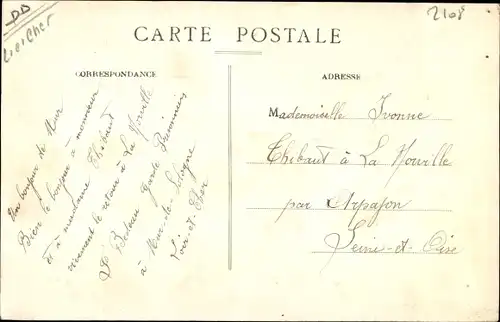 DD
Loir et Cher
2108
CARTE POSTALE
CORRESPONDANCE
ADRESSE
Un bonjour de Mur
Bien le bonjour à monsieur
et à madame Thibaut
vivement le retour à La Norville
à Mur-de-Sologne
Loir-et-Cher
Mademoiselle Ivonne
Thibaut à La Norville
par Arpajon
Seine-et-Oise